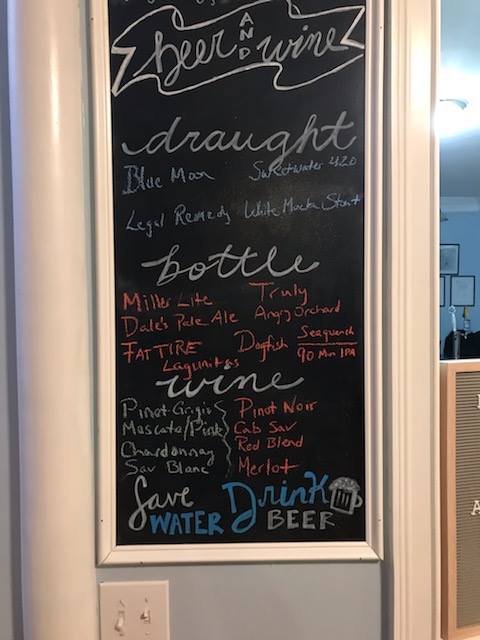 beer AND wine
draught
Blue Moon Sweetwater 420
Legal Remedy White Mocha Stout
bottle
Miller Lite Truly
Dale's Pale Ale Angry Orchard
FAT TIRE Dogfish Seaquench
90 Min IPA
Lagunitas
wine
Pinot Grigio Pinot Noir
Moscato/Pink Cab Sav
Chardonnay Red Blend
Sav Blanc Merlot
Save Drink
WATER BEER